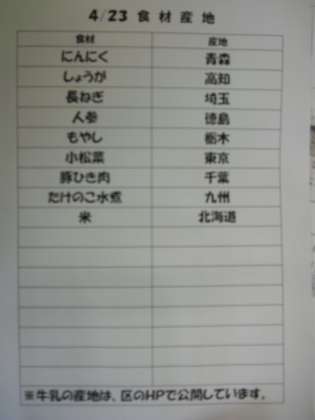 4/23 食材産地
食材 産地
にんにく 青森
しょうが 高知
長ねぎ 埼玉
人参 徳島
もやし 栃木
小松菜 東京
豚ひき肉 千葉
たけのこ水煮 九州
米 北海道
※牛乳の産地は、区のHPで公開しています。